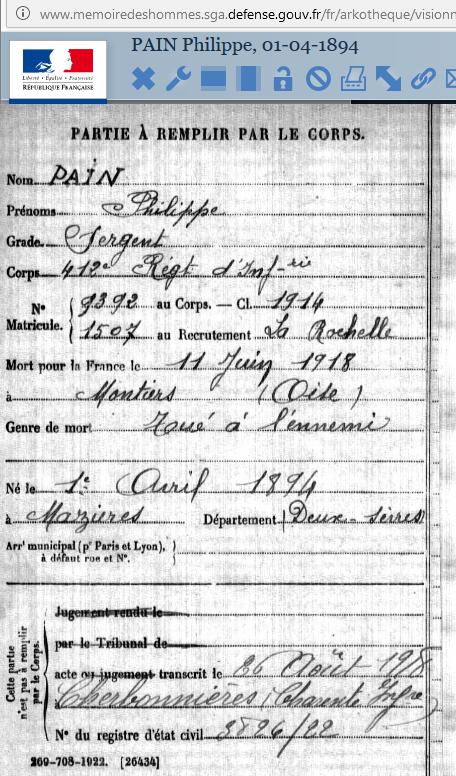 www.memoiredeshommes.sga.defense.gouv.fr/fr/arkotheque/visionn
PAIN Philippe, 01-04-1894
Liberté • Égalité • Fraternité
RÉPUBLIQUE FRANÇAISE
PARTIE À REMPLIR PAR LE CORPS.
Nom PAIN
Prénoms Philippe
Grade Sergent
Corps 412e Régt d'Inf-rie
N° Matricule. 9392 au Corps. — Cl. 1914
1507 au Recrutement La Rochelle
Mort pour la France le 11 Juin 1918
à Montiers (Oise)
Genre de mort Tué à l'ennemi
Né le 1e Avril 1894
à Mazières Département Deux-Sèvres
Arrt municipal (pr Paris et Lyon),
à défaut rue et N°.
Cette partie n'est pas à remplir par le Corps.
Jugement rendu le
par le Tribunal de
acte ou jugement transcrit le 26 Août 1918
(Charente Infre)
N° du registre d'état civil
269-708-1922. [26434]